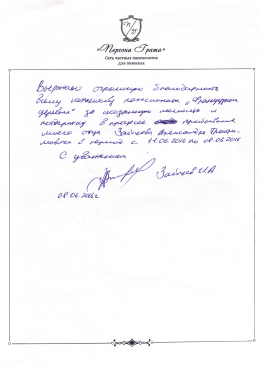 «Персона Грата»
Сеть частных пансионатов
для пожилых
Выражаю огромную благодарность
всему коллективу пансионата „Французская
деревня" за оказанную помощь и
поддержку в процессе пребывания
моего отца Зайцева Александра
в период с 11.06.2016 по 08.06.2016
С уважением
Зайцев И.А
08.06.2016г